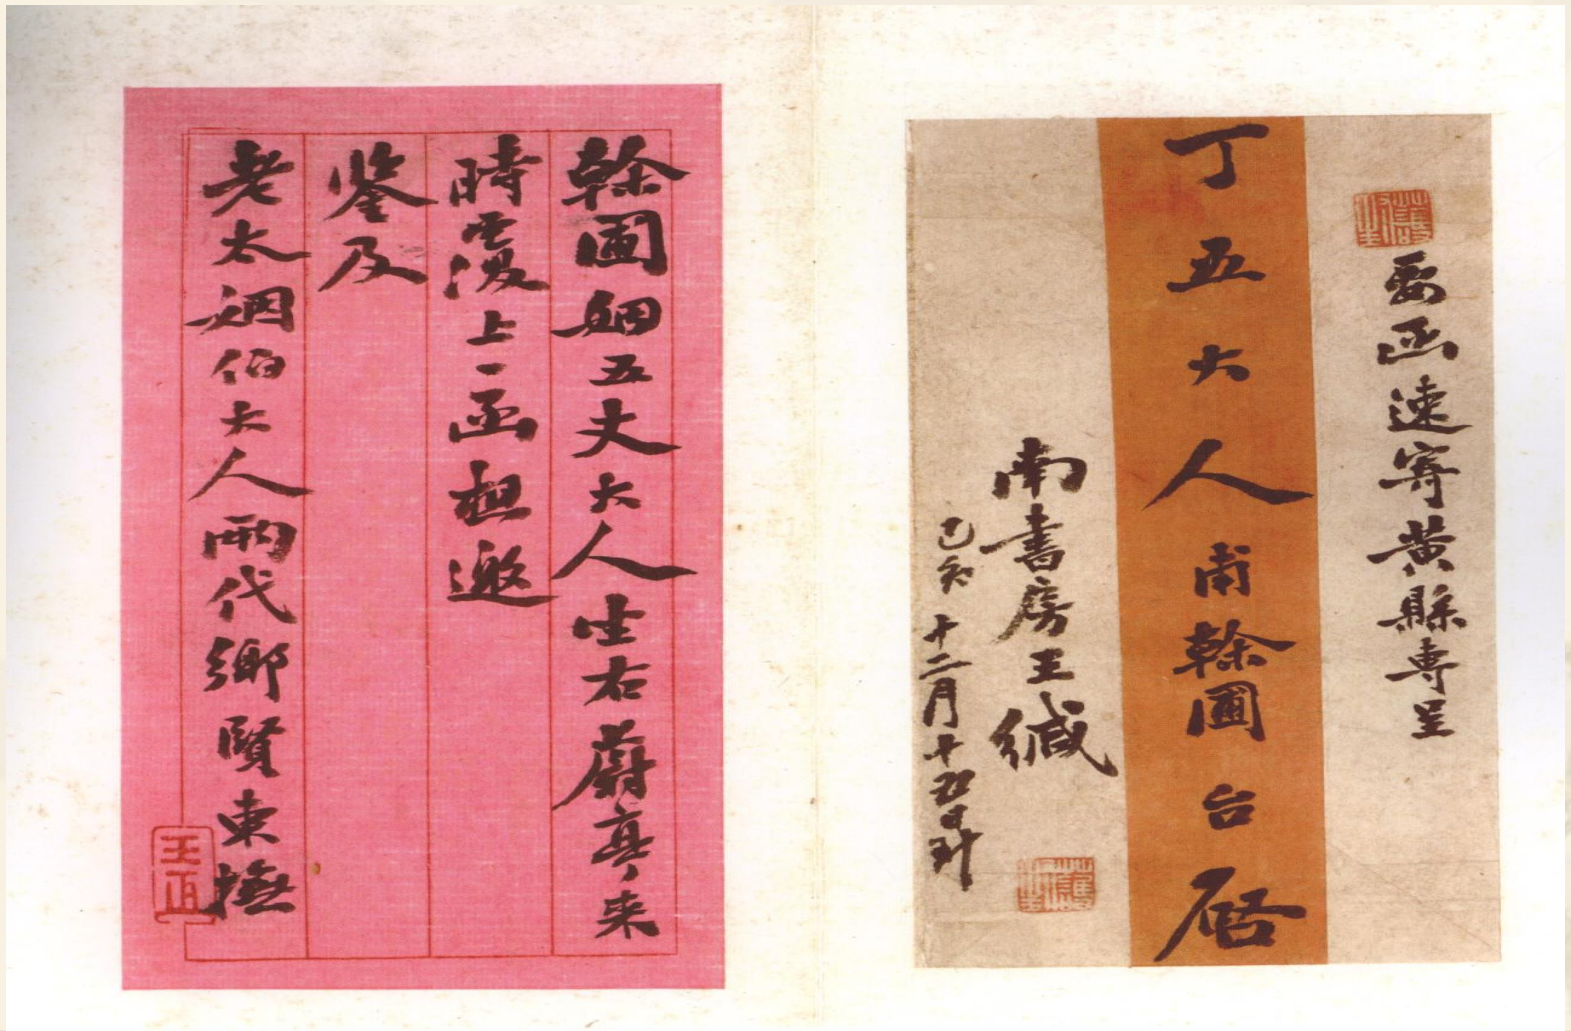 要函速寄黄縣専呈
丁五大人甫榦圃台启
南書房王緘
己亥十二月十五日封
榦圃姻五丈大人坐右蔚亭来
時覆上一函想邀
鑒及
老太姻伯大人兩代鄉賢東撫